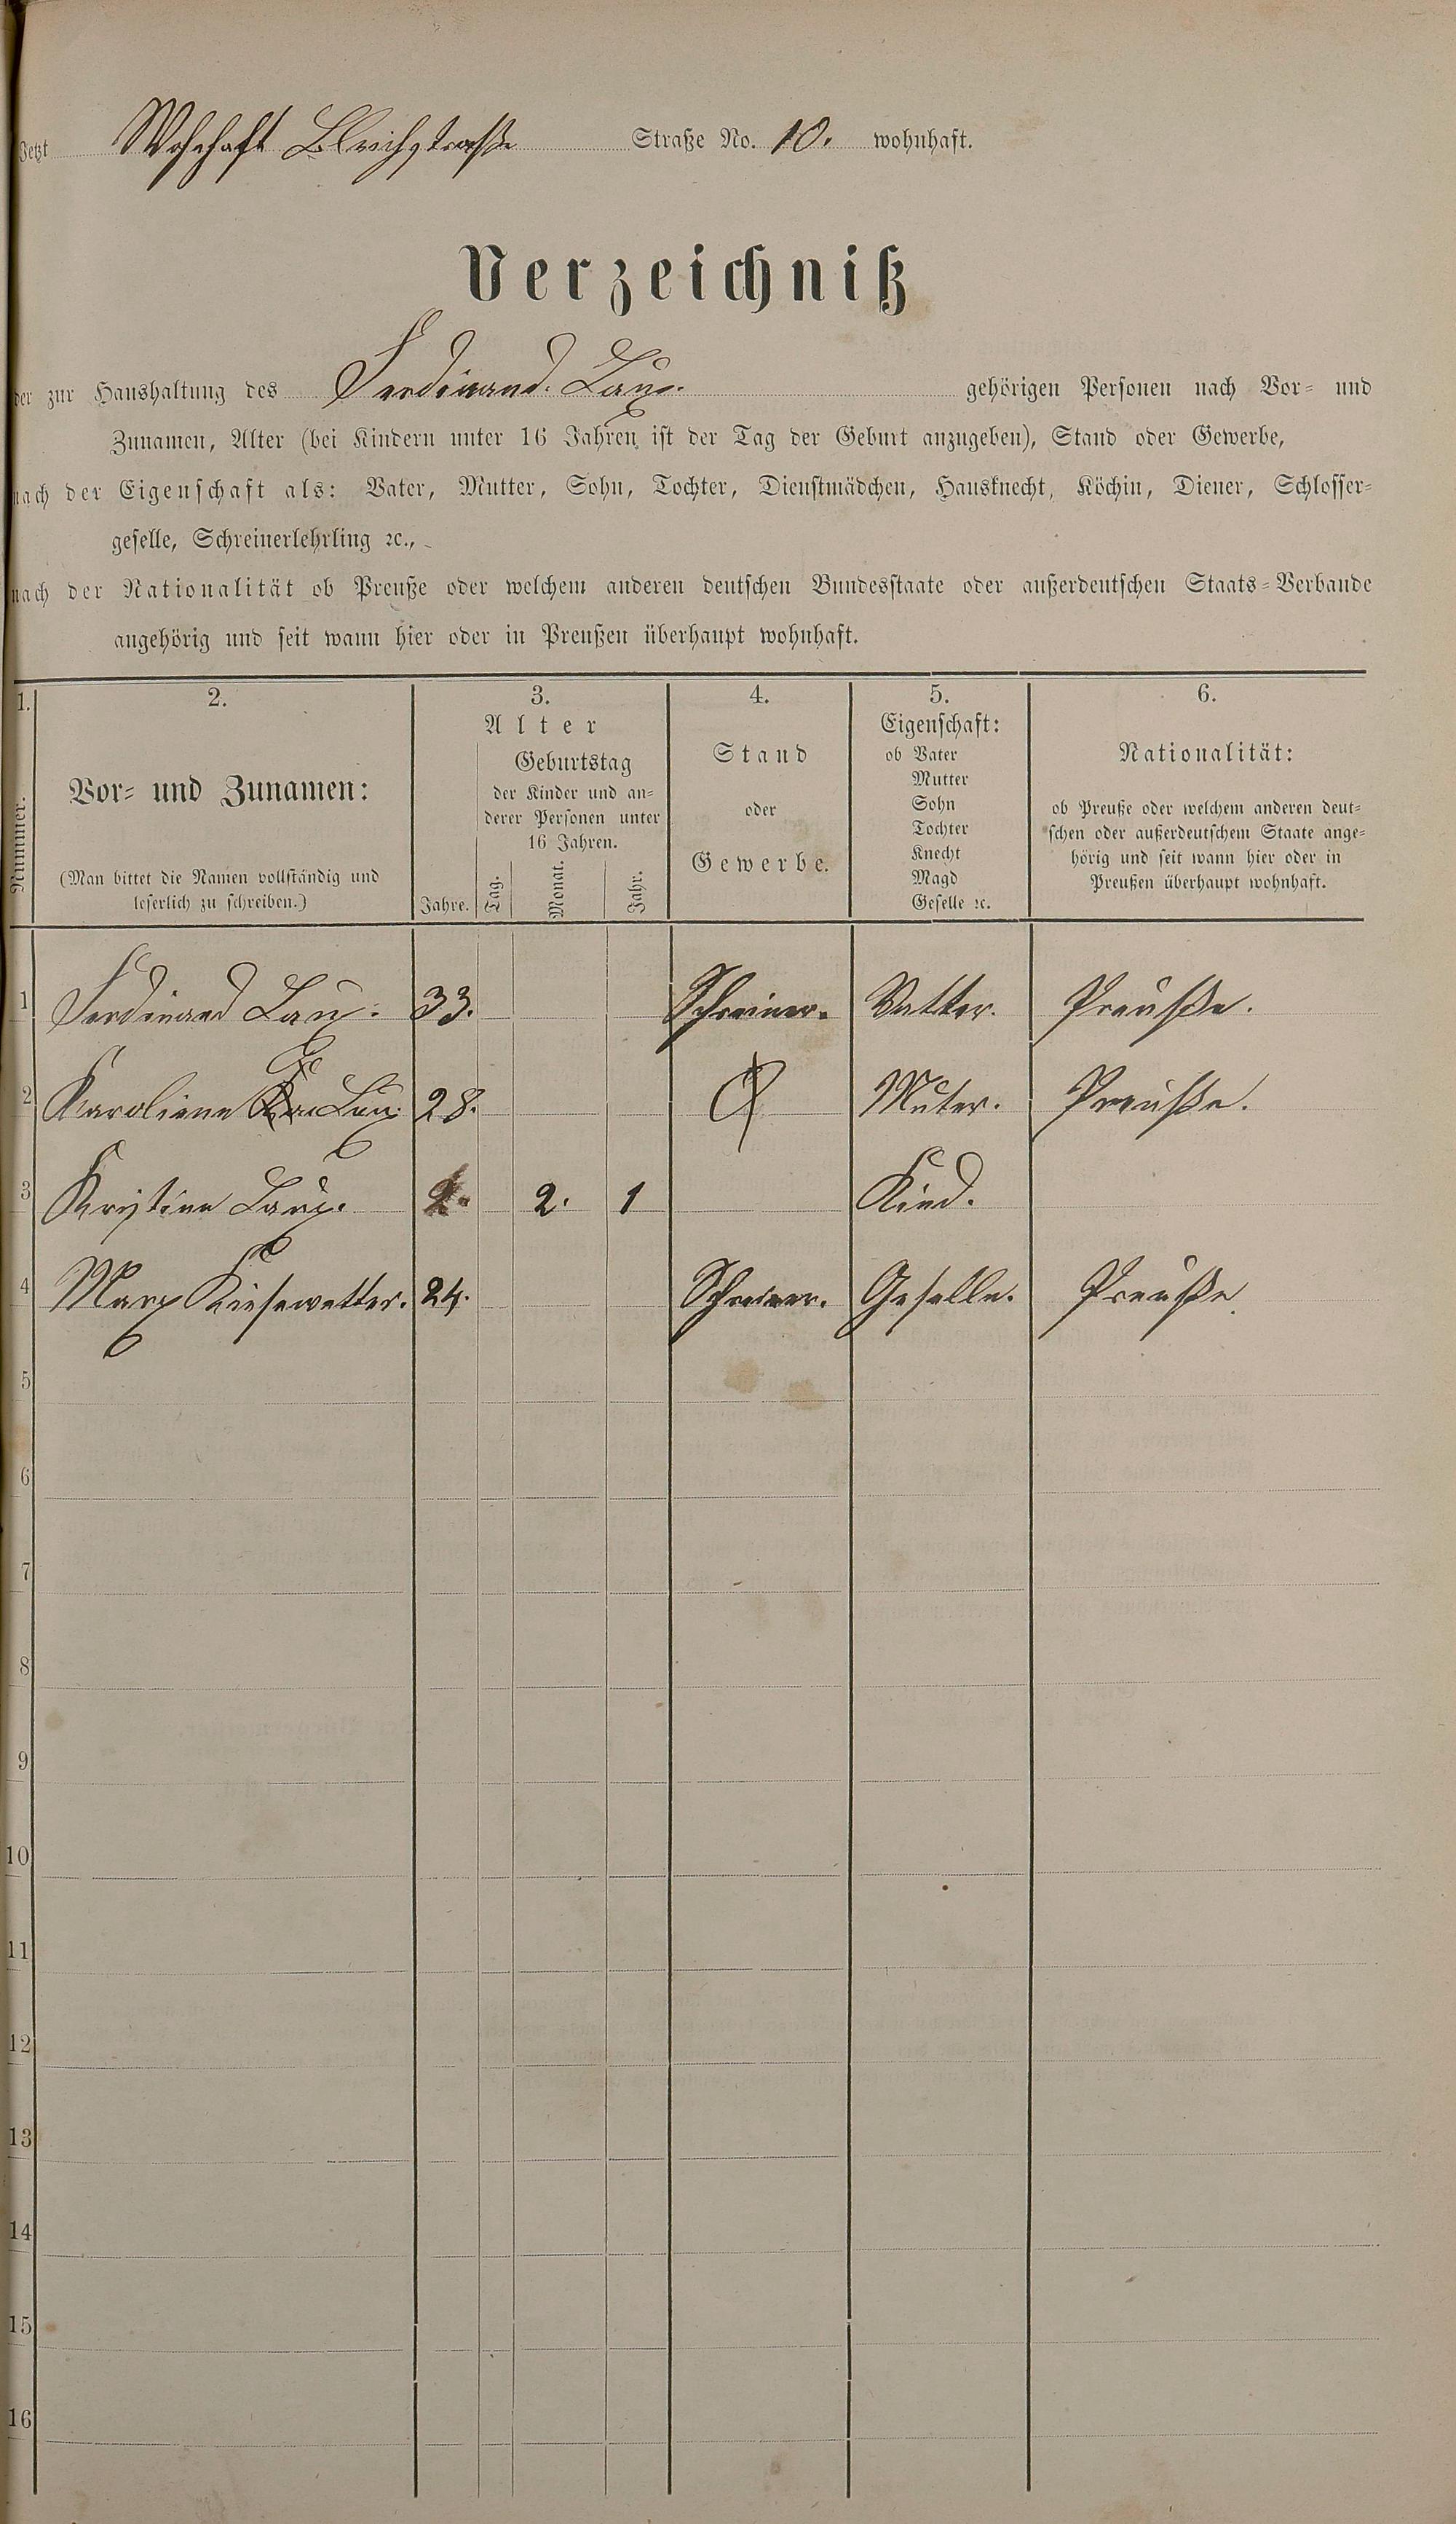 Jetzt Wohnhaft Bleichstraße Straße No. 10. wohnhaft.
Verzeichniß
der zur Haushaltung des Ferdinand. Laux. gehörigen Personen nach Vor- und
Zunamen, Alter (bei Kindern unter 16 Jahren ist der Tag der Geburt anzugeben), Stand oder Gewerbe,
nach der Eigenschaft als: Vater, Mutter, Sohn, Tochter, Dienstmädchen, Hausknecht, Köchin, Diener, Schlosser-
geselle, Schreinerlehrling ꝛc.,
nach der Nationalität ob Preuße oder welchem anderen deutschen Bundesstaate oder außerdeutschen Staats-Verbande
angehörig und seit wann hier oder in Preußen überhaupt wohnhaft.
1. 2. 3. 4. 5. 6.
Nummer.
Vor- und Zunamen:
(Man bittet die Namen vollständig und
leserlich zu schreiben.)
Alter
Jahre.
Geburtstag
der Kinder und an-
derer Personen unter
16 Jahren.
Tag. Monat. Jahr.
Stand
oder
Gewerbe.
Eigenschaft:
ob Vater
Mutter
Sohn
Tochter
Knecht
Magd
Geselle ꝛc.
Nationalität:
ob Preuße oder welchem anderen deut-
schen oder außerdeutschem Staate ange-
hörig und seit wann hier oder in
Preußen überhaupt wohnhaft.
1 Ferdinand Laux. 33. Schreiner. Vatter. Preuße.
2 Karoliene Laux. 28. Muter. Preuße.
3 Kristine Laux. 2. 1 Kind.
4 Marx Kiesewetter. 24. Schreiner. Geselle. Preuße
5
6
7
8
9
10
11
12
13
14
15
16